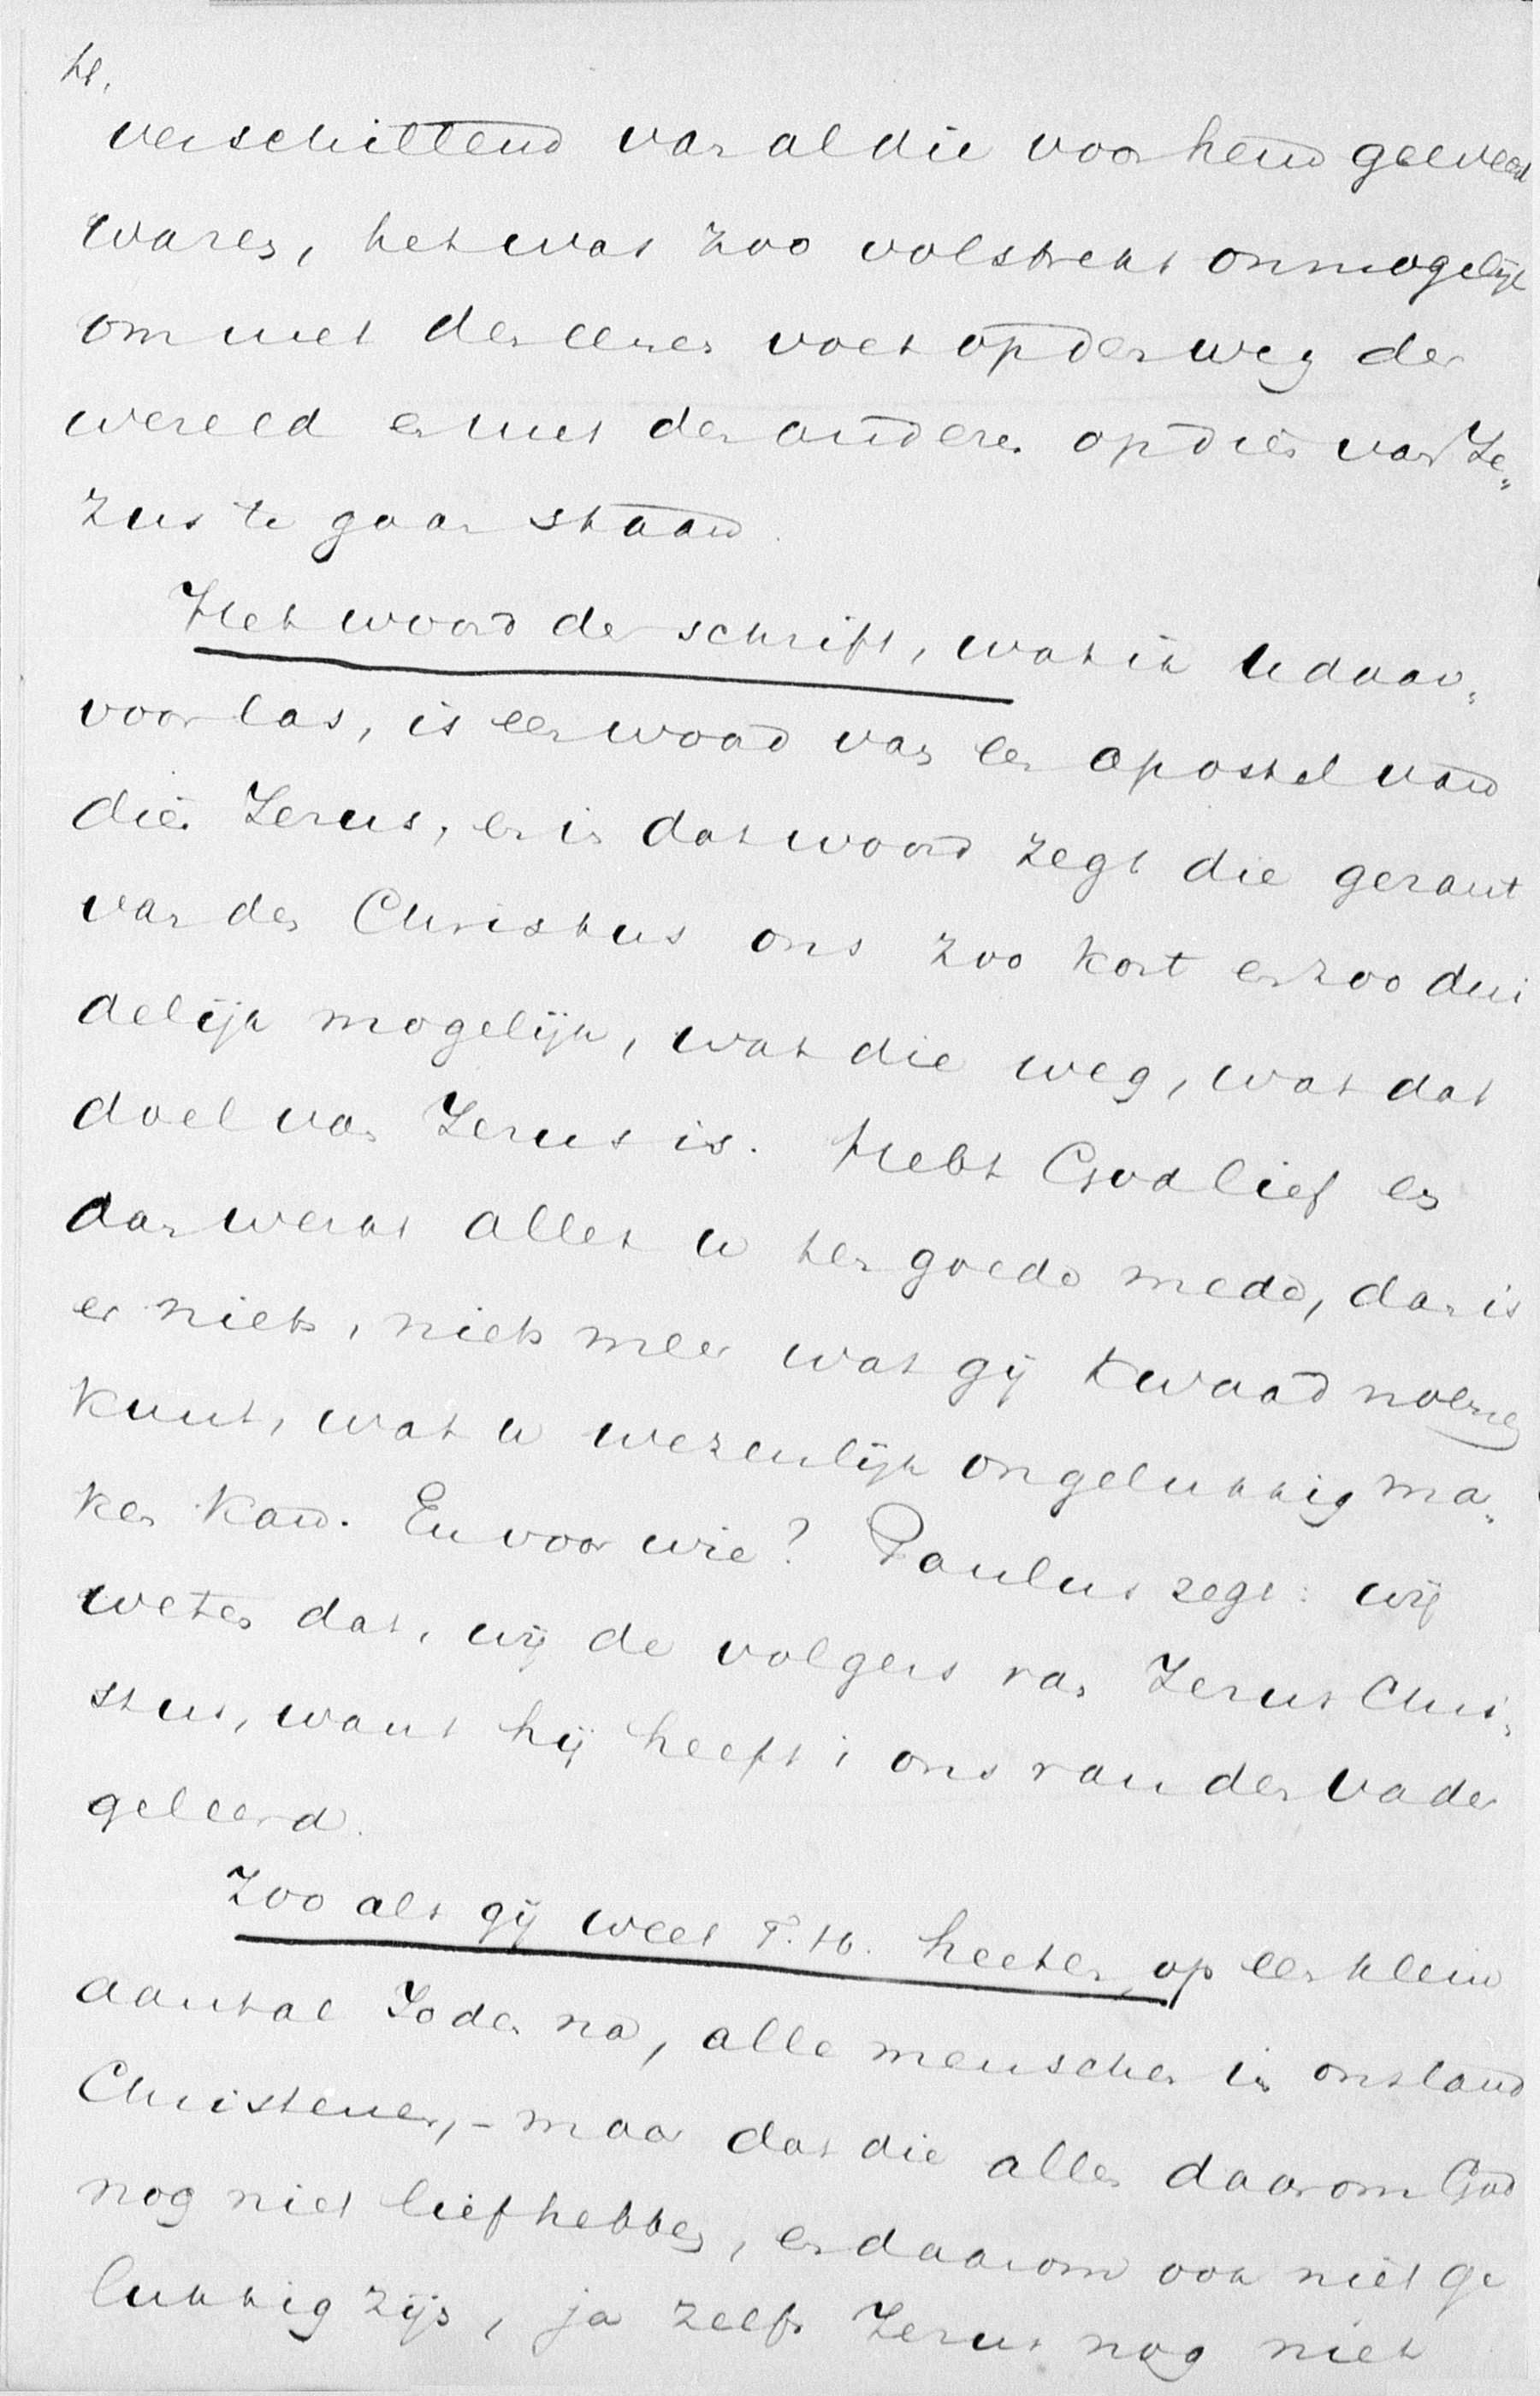 4.
verschillend van al die voor hem geweest
waren, het was zoo volstrekt onmogelijk
om met den eenen voet op den weg der
wereld en met den anderen op dien van Je„
zus te gaan staan.
Het woord der schrift, wat ik u daar„
voor las, is een woord van een apostel van
dien Jezus, en in dat woord zegt die gezant
van den Christus ons zoo kort en zoo dui
delijk mogelijk, wat die weg, wat dat
doel van Jezus is. Hebt God lief en
dan werkt alles u ten goede mede, dan is
er niets, niets meer wat gij kwaad noemen
kunt, wat u wezenlijk ongelukkig ma„
ken kan. En voor wie? Paulus zegt: wij
weten dat, wij de volgers van Jezus Chri„
stus, want hij heeft 't ons van den vader
geleerd.
Zoo als gij weet T. H. heeten, op een klein
aantal Joden na, alle menschen in ons land
Christenen, – maar dat die allen daarom God
nog niet liefhebben, en daarom ook niet ge
lukkig zijn, ja zelfs Jezus nog niet